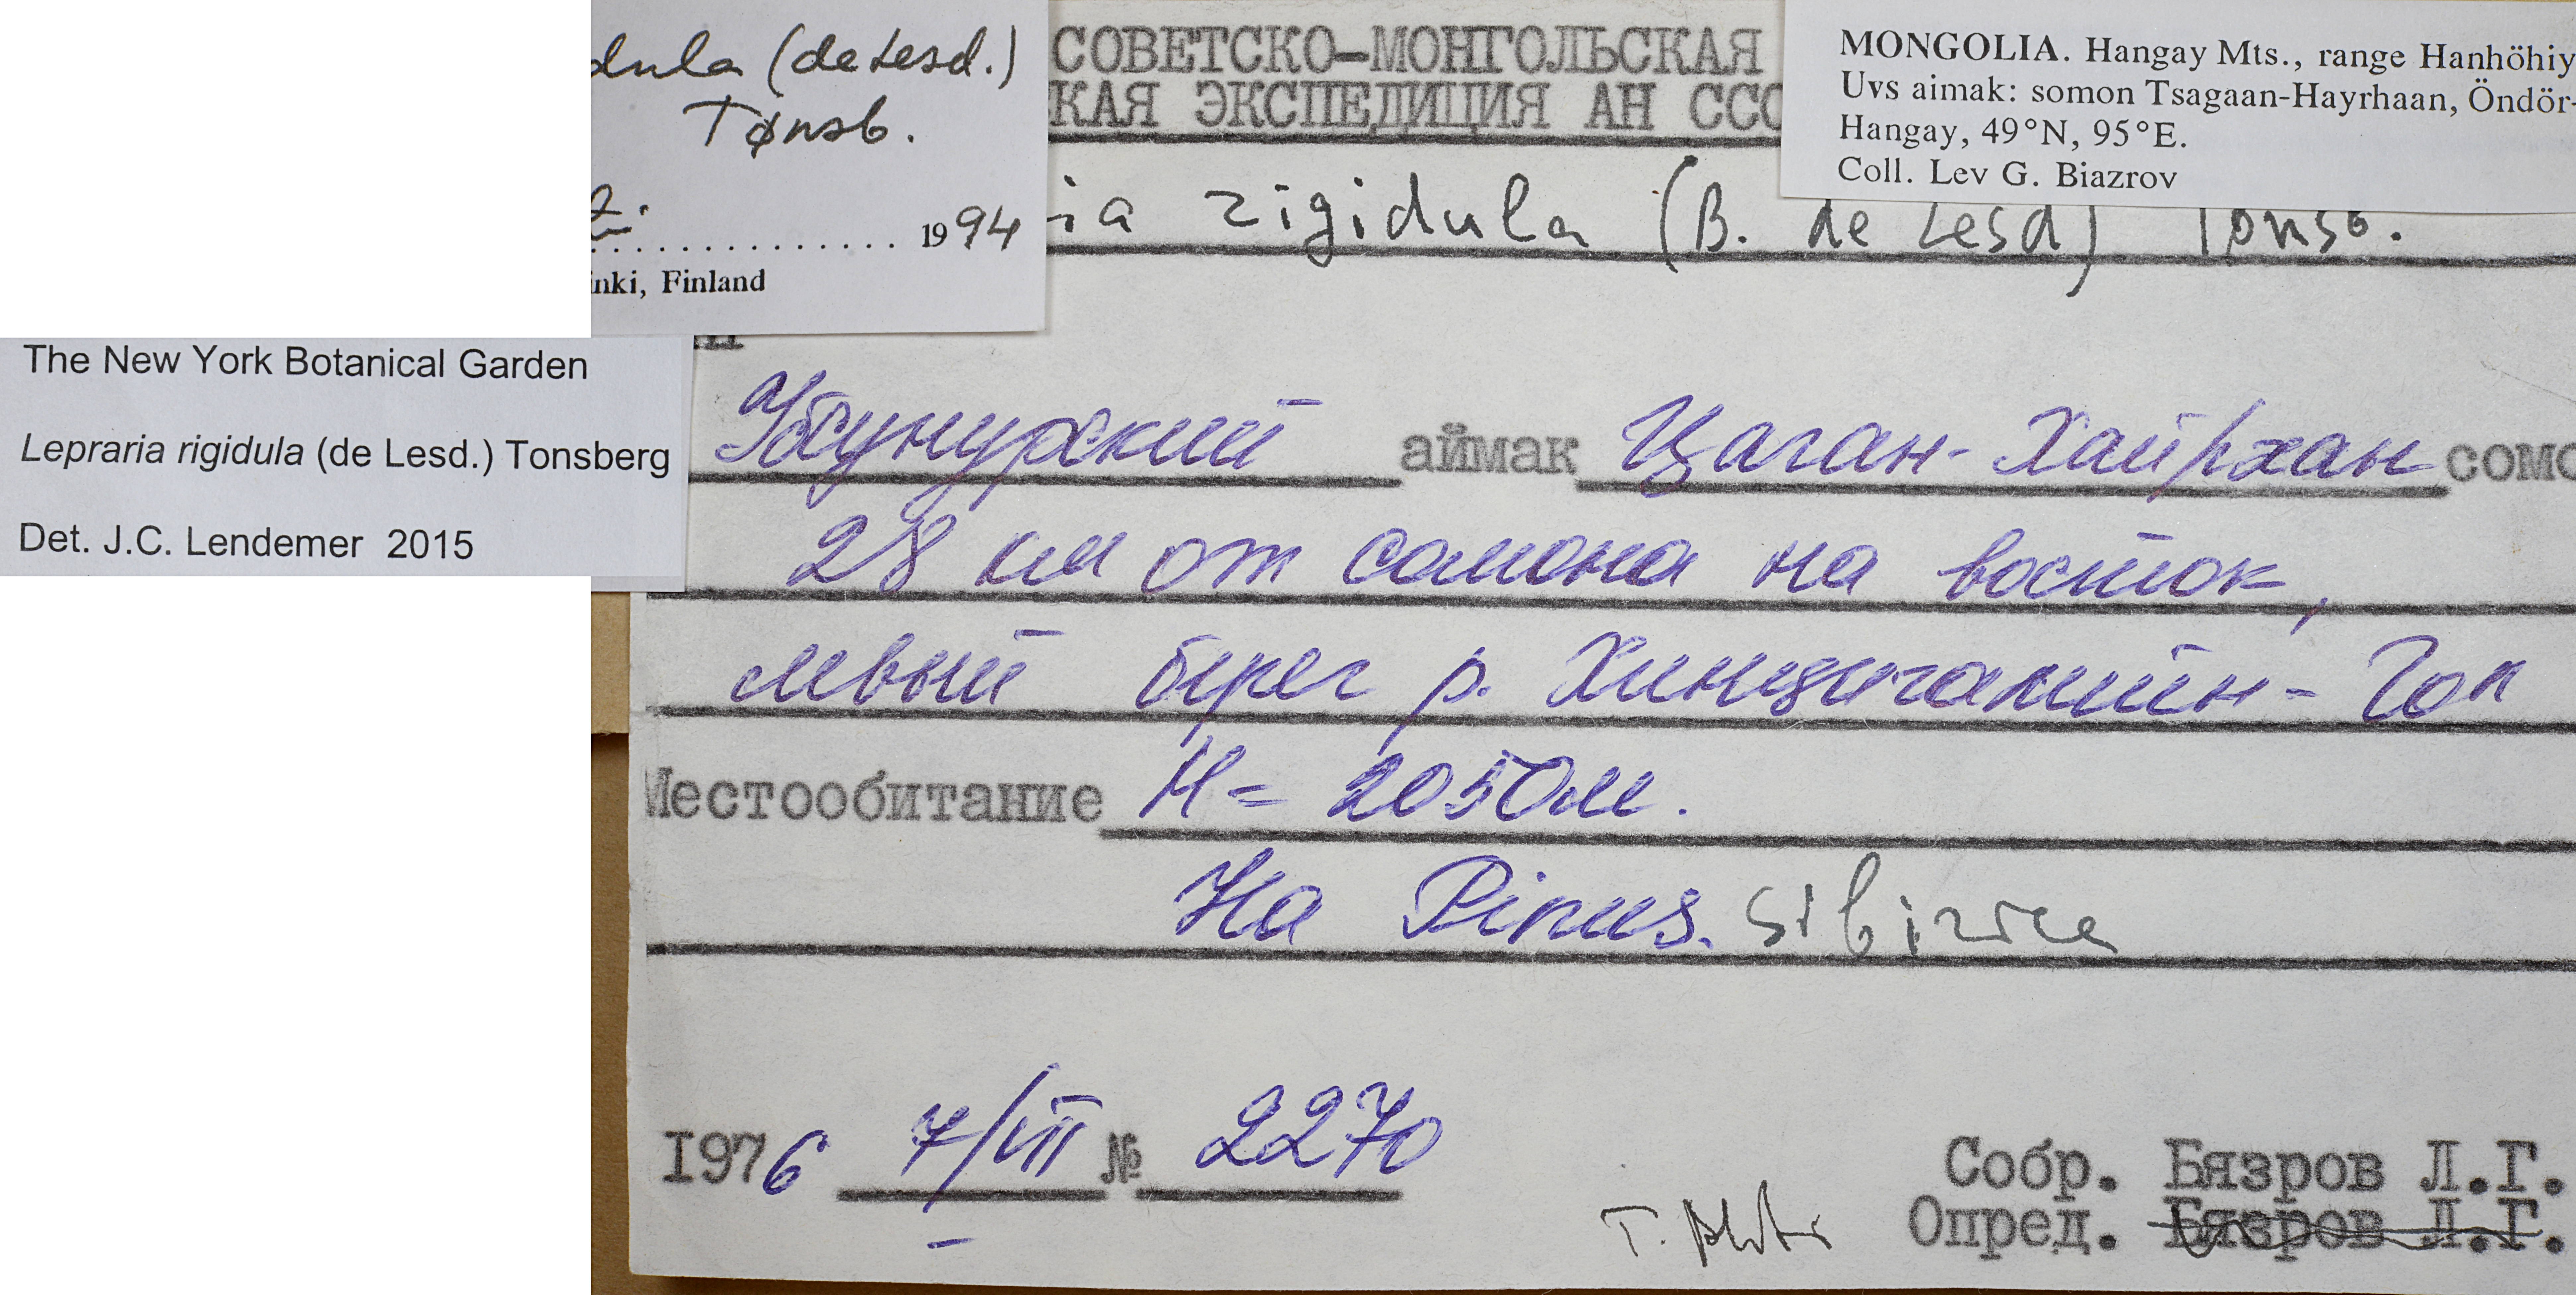 dula (de Lesd.)
Tønsb.
1994
nki, Finland
СОВЕТСКО-МОНГОЛЬСКАЯ
КАЯ ЭКСПЕДИЦИЯ АН ССС
MONGOLIA. Hangay Mts., range Hanhöhiy
Uvs aimak: somon Tsagaan-Hayrhaan, Öndör-
Hangay, 49°N, 95°E.
Coll. Lev G. Biazrov
ia rigidula (B. de Lesd) Tonsb.
The New York Botanical Garden
Lepraria rigidula (de Lesd.) Tonsberg
Det. J.C. Lendemer 2015
Убсунурский аймак Цаган-Хайрхан сомо
28 км от сомона на восток,
левый берег р. Хунцигамийн-Гол
Местообитание H = 2050м.
На Pinus. sibirica
1976 7/VII № 2270
Собр. Бязров Л.Г.
T. Опред. Бязров Л.Г.